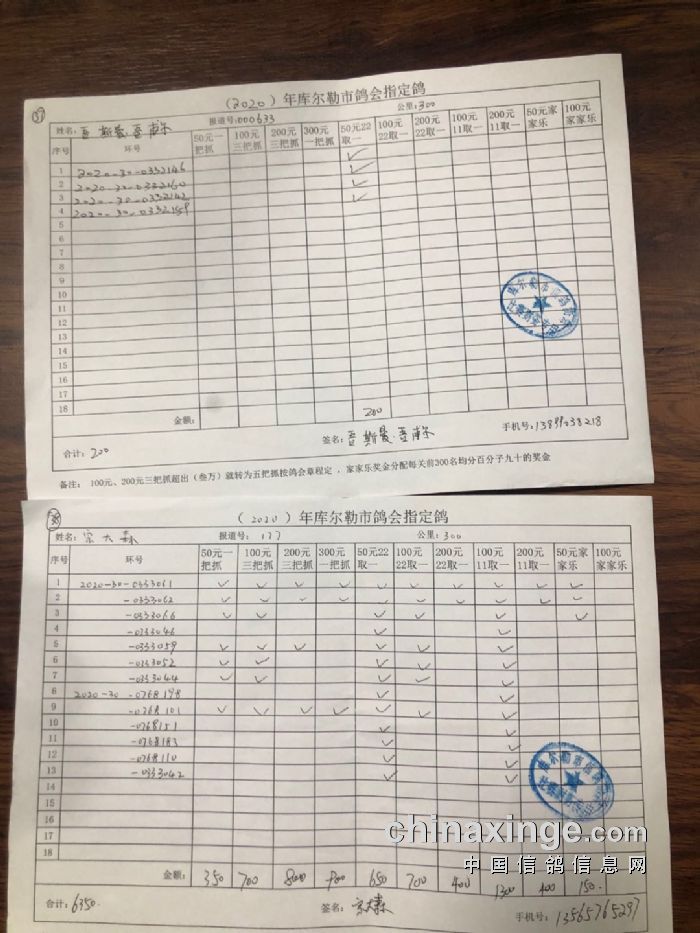 37
（2020）年库尔勒市鸽会指定鸽
姓名： 报道号：000633 公里：300
序号 环号 50元一把抓 100元三把抓 200元三把抓 300元一把抓 50元22取一 100元22取一 200元22取一 100元11取一 200元11取一 50元家家乐 100元家家乐
1 2020-30-0332146 ✓
2 2020-30-0332160 ✓
3 2020-30-0332142 ✓
4 2020-30-0332159 ✓
5
6
7
8
9
10
11
12
13
14
15
16
17
18
金额： 200
合计：200 签名： 手机号：
备注： 100元、200元三把抓超出（叁万）就转为五把抓按鸽会章程定，家家乐奖金分配每关前300名均分百分子九十的奖金
库尔勒市信鸽协会
比赛财务专用
38
（2020）年库尔勒市鸽会指定鸽
姓名：宗大森 报道号：177 公里：300
序号 环号 50元一把抓 100元三把抓 200元三把抓 300元一把抓 50元22取一 100元22取一 200元22取一 100元11取一 200元11取一 50元家家乐 100元家家乐
1 2020-30-0333061 ✓ ✓ ✓ ✓ ✓ ✓ ✓ ✓ ✓ ✓
2 -0333062 ✓ ✓ ✓ ✓ ✓ ✓ ✓ ✓ ✓ ✓
3 -0333066 ✓ ✓ ✓ ✓ ✓ ✓
4 -0333046 ✓ ✓
5 -0333059 ✓ ✓ ✓ ✓ ✓ ✓
6 -0333052 ✓ ✓ ✓ ✓ ✓
7 -0333044 ✓ ✓ ✓ ✓ ✓
8 2020-30-0768198 ✓ ✓
9 -0768101 ✓ ✓ ✓ ✓ ✓ ✓ ✓
10 -0768151 ✓ ✓
11 -0768183 ✓ ✓
12 -0768110 ✓ ✓
13 -0333042 ✓ ✓
14
15
16
17
18
金额： 350 700 800 900 650 700 400 1300 400 150.
合计：6350. 签名：宗大森 手机号：13565765297
库尔勒市信鸽协会
比赛财务专用
chinaxinge.com
中国信鸽信息网